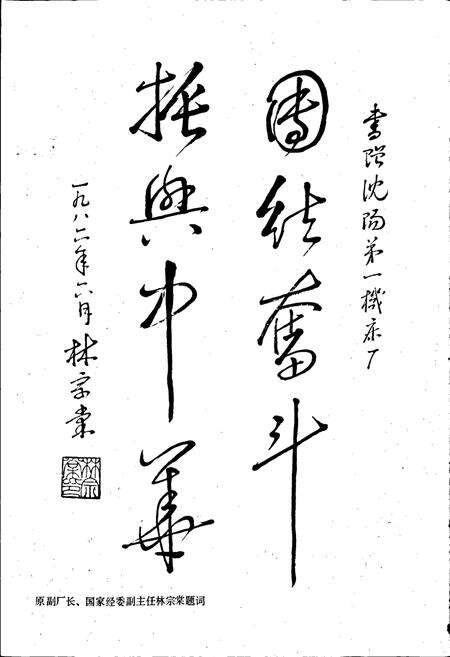 书赠沈阳第一機床厂
團结奮斗
振興中華
一九八二年六月 林宗棠
原副厂长、国家经委副主任林宗棠题词